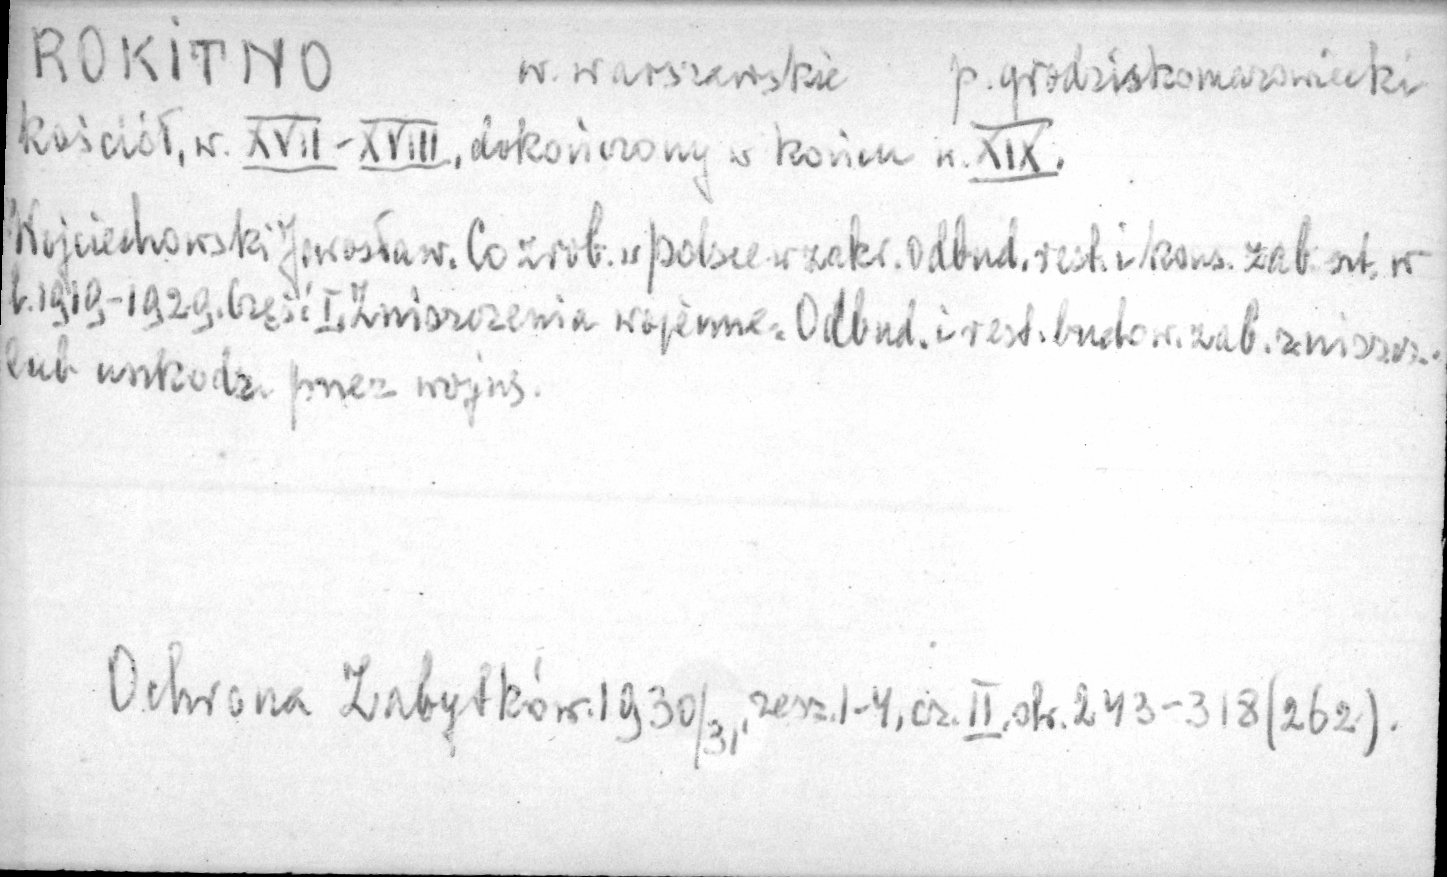 ROKITNO w. warszawskie p. grodziskomazowiecki
kościół, w. XVII-XVIII, dokończony w końcu w. XIX.
Wojciechowski Jarosław. Co zrob. w polsce w zakr. odbud. rest. i kons. zab. szt. w
l. 1919-1929. Część I. Zniszczenia wojenne. Odbud. i rest. budow. zab. zniszcz.
lub uszkodz. przez wojnę.
Ochrona Zabytków. 1930/31, zesz. 1-4, cz. II, str. 243-318 (262).